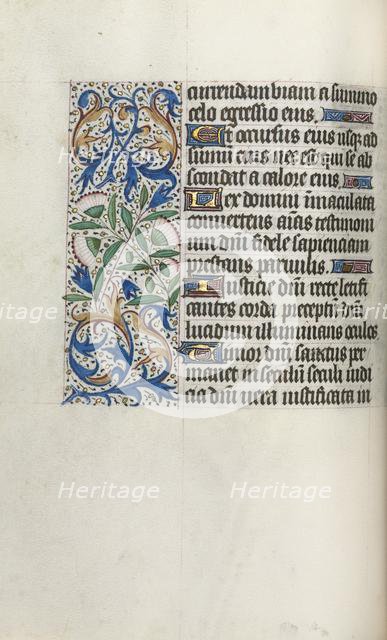 currendam viam a summo
celo egressio eius.
Et occursus eius usq; ad
sumū eius nec est qui se ab
scondat a calore eius.
Lex domini īmaculata
convertens aīas testimoni
um dnī fidele sapienciam
prestans parvulis.
Iusticie dnī recte letifi
cantes corda preceptū dnī
lucidum illuminans oculos.
Timor dnī sanctus per
manet in seculū seculi iudi
cia dnī vera iustificata in
Heritage
Heritage
Heritage
Heritage
Heritage
Heritage